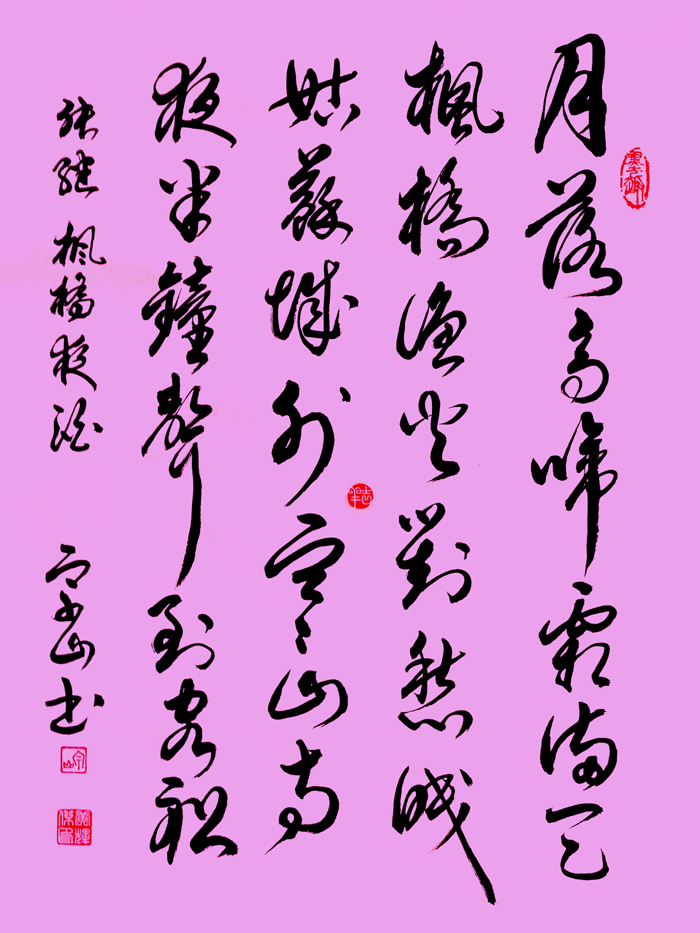 月落烏啼霜滿天
楓橋漁火對愁眠
姑蘇城外寒山寺
夜半鐘聲到客船
張繼 楓橋夜泊
山书